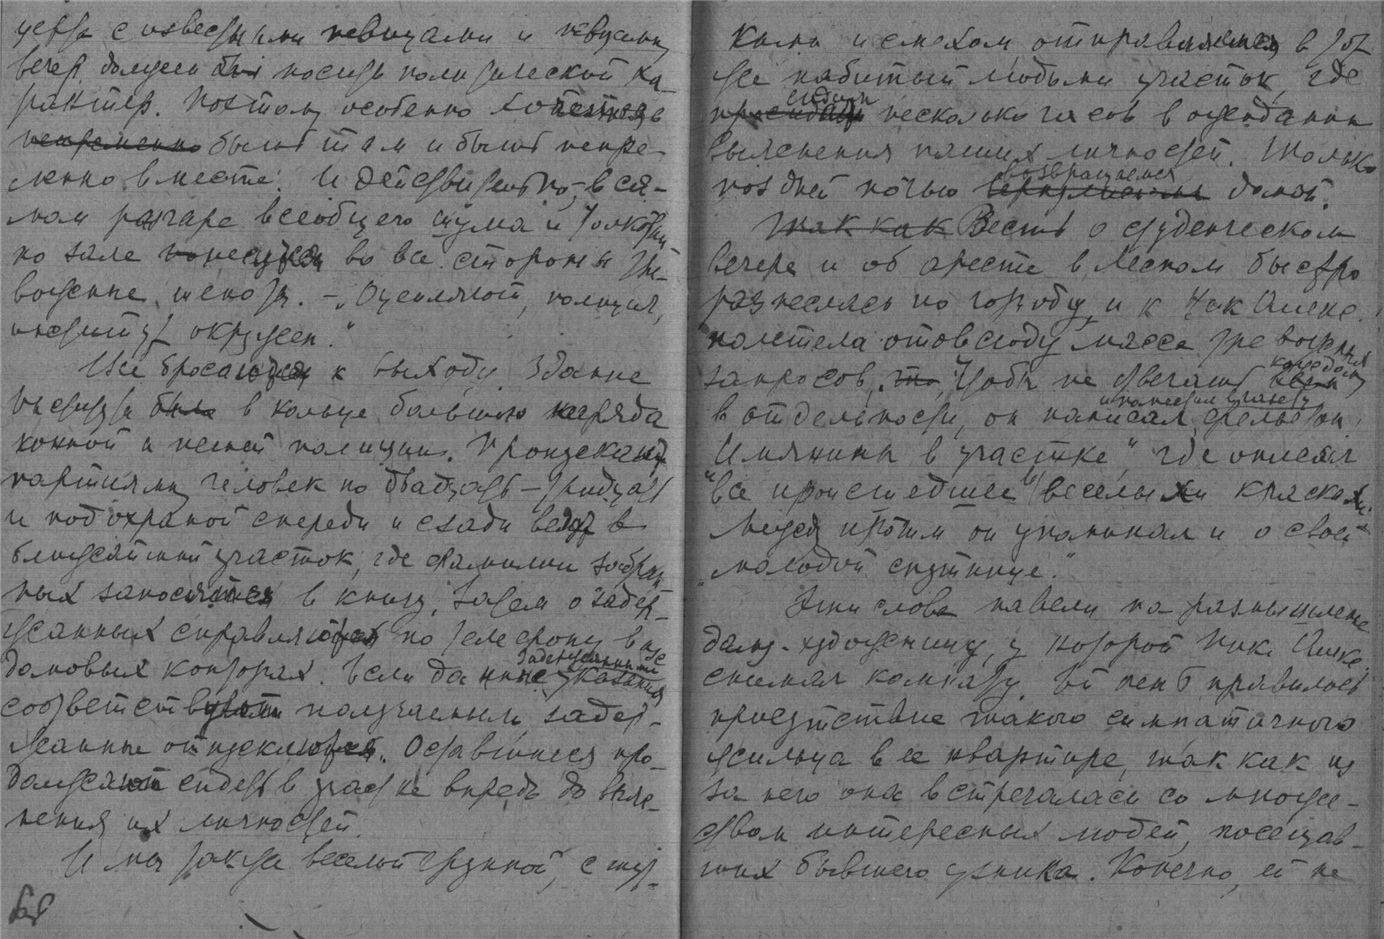 церта с известными певцами и певицами
вечер должен был носить политический ха-
рактер. Поэтому особенно хочется
непременно быть там и быть непре-
менно вместе. И действительно, в са-
мом разгаре всеобщего шума и толкотни
по зале понесся во все стороны тре-
вожные шепоты. – „Оцепляют, полиция,
институт окружен.“
Все бросаются к выходу. Здание
института было в кольце большого наряда
конной и пешей полиции. Пропускают
партиями человек по двадцать – тридцать
и под охраной спереди и сзади ведут в
ближайший участок, где фамилии забран-
ных заносятся в книгу, затем о задер-
жанных справляются по телефону в их
домовых конторах. Если данные задержанными указания
соответствуют полученным, задер-
жанные отпускаются. Оставшиеся про-
должают сидеть в участке впредь до выяс-
нения их личностей.
И мы также веселой группой, с шут-
68
ками и смехом отправляемся в тот
же набитый людьми участок, где
просидели сидим несколько часов в ожидании
выяснения наших личностей. Только
поздней ночью вернулись возвращаемся домой.
Так как Весть о студенческом
вечере и об аресте в Лесном быстро
разнеслась по городу, и к Ник Алекс.
полетела отовсюду масса тревожных
запросов, то, чтобы не отвечать всем каждому
в отдельности, он написал и поместил в газету фельетон:
„Имянины в участке“, где описал
все происшедшее „веселыми красками.“
Между прочим он упоминал и о своей
„молодой спутнице.“
Эти слова навели на размышление
даму-художницу, у которой Ник. Алекс.
снимал комнату. Ей нравилось
присутствие такого симпатичного
жильца в ее квартире, так как из
за него она встречалась со множе-
ством интересных людей, посещав-
ших бывшего узника. Конечно, ей не